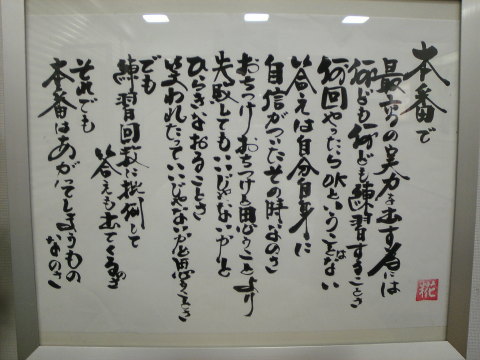 本番で
最高の実力を出す為には
何ども何ども練習することさ
何回やったらOKということはない
答えは自分自身に
自信がついたその時なのさ
おちつけおちつけと思うことより
失敗してもいいじゃないかと
ひらきなおることさ
笑われたっていいじゃないかと思うことさ
でも
練習回数に比例して
答えも出てくるのさ
それでも
本番はあがってしまうもの
なのさ